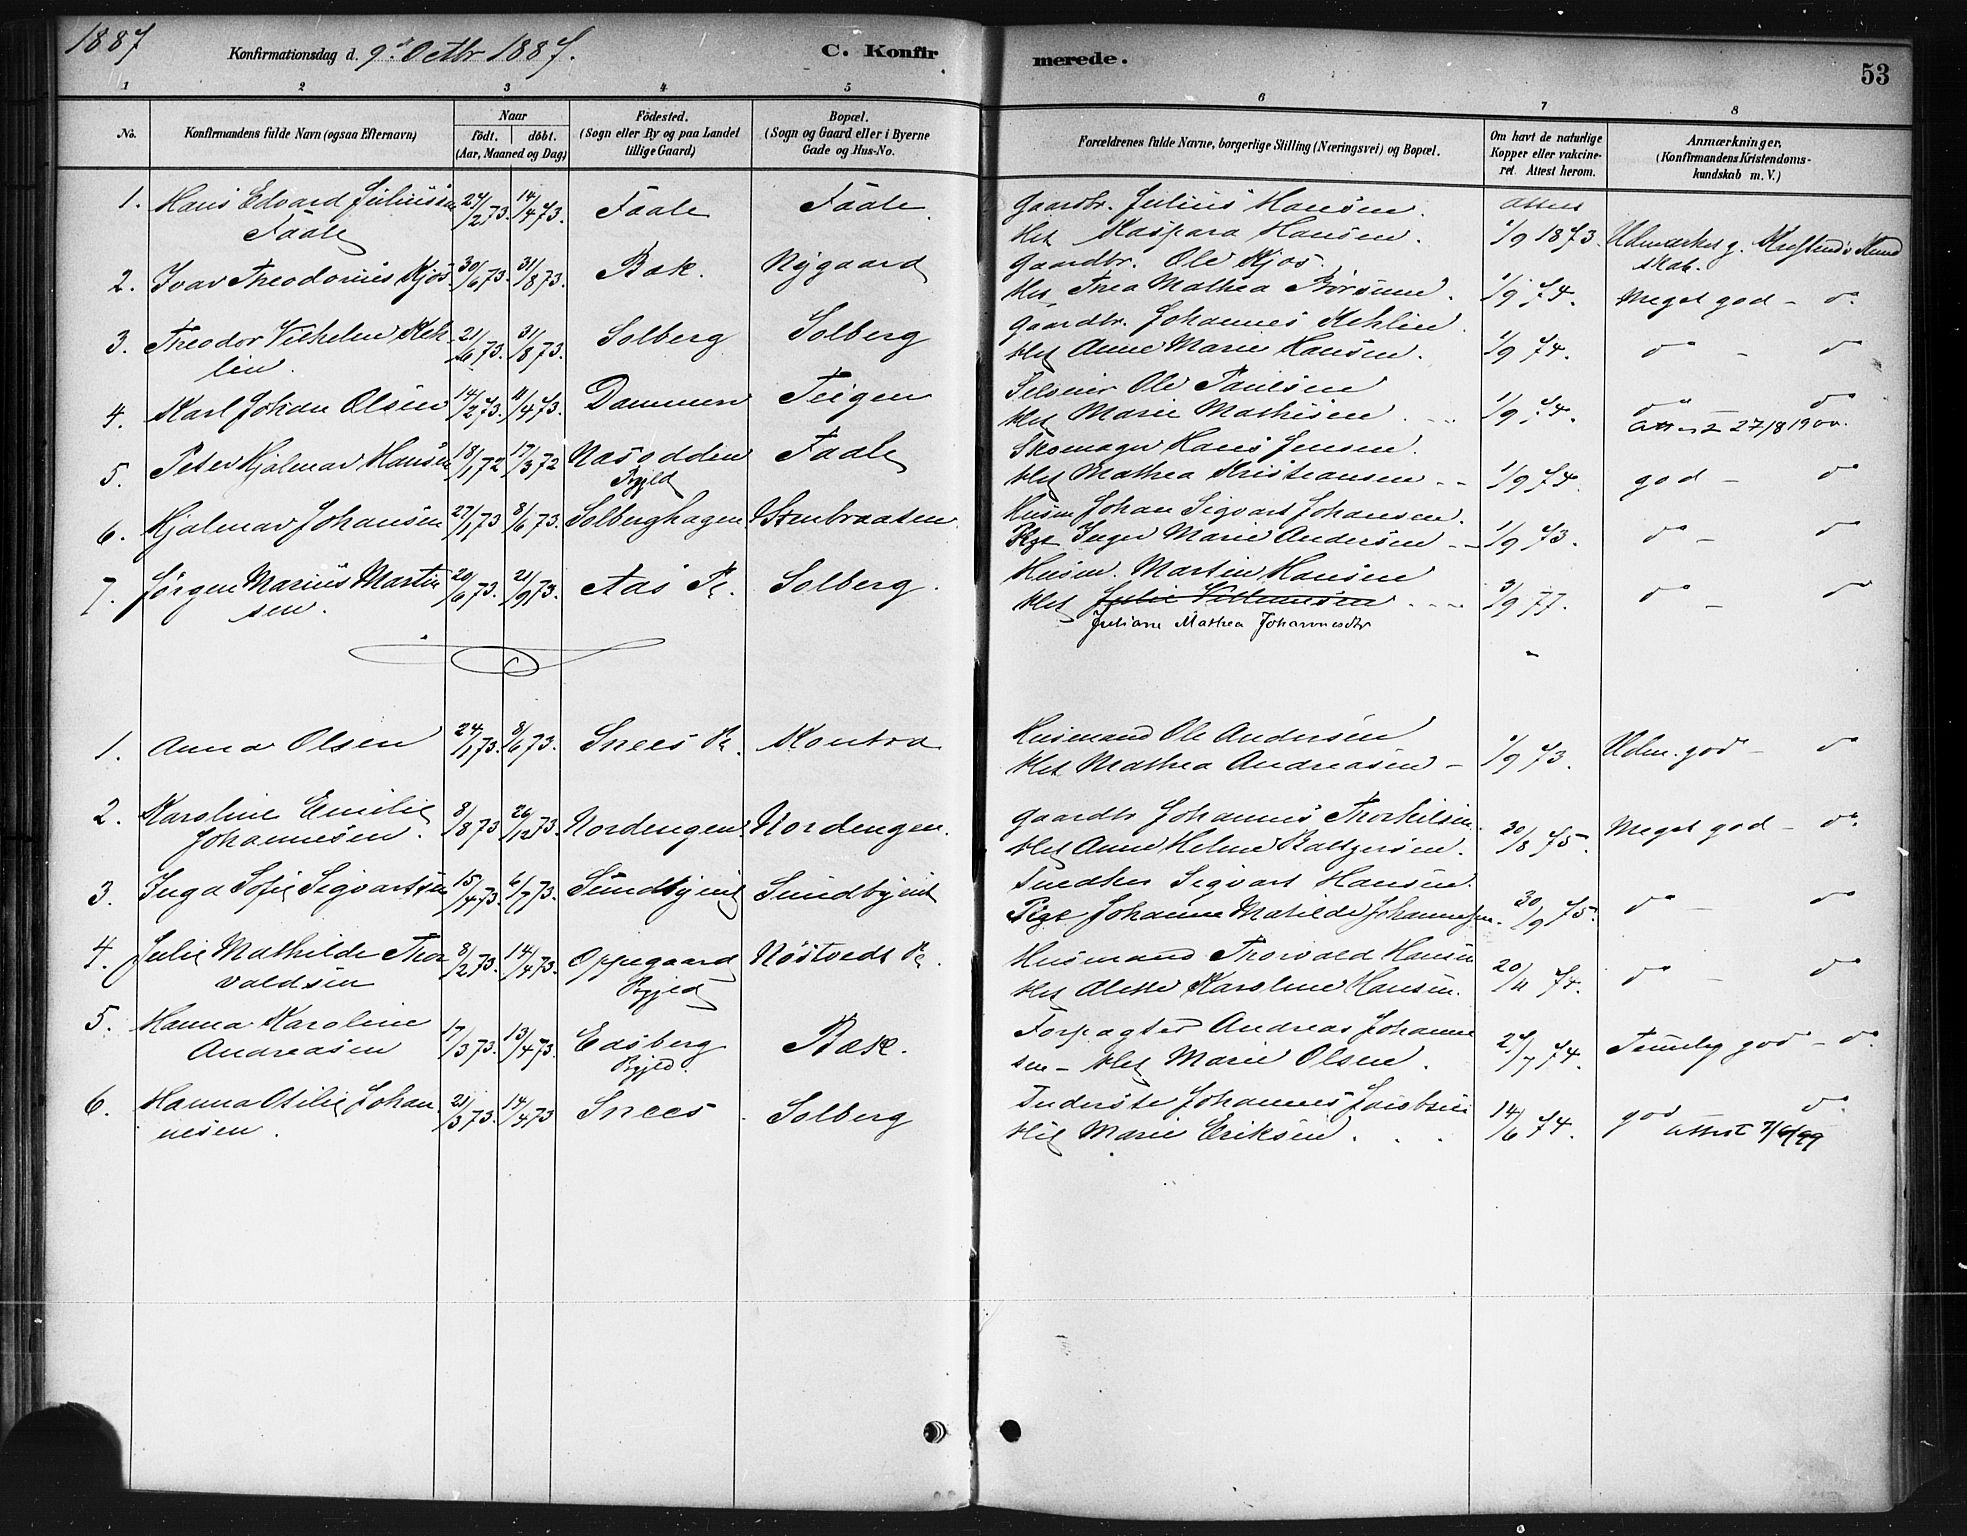 1887
Konfirmationsdag d. 9de Octbr 1887.
C. Konfir
merede.
53
1 2 3 4 5 6 7 8
No.
Konfirmandens fulde Navn (ogsaa Efternavn)
Naar
födt. döbt.
(Aar, Maaned og Dag)
Födested.
(Sogn eller By og paa Landet
tillige Gaard)
Bopæl.
(Sogn og Gaard eller i Byerne
Gade og Hus-No.
Forældrenes fulde Navne, borgerlige Stilling (Næringsvei) og Bopæl.
Om havt de naturlige
Kopper eller vakcine-
ret. Attest herom.
Anmærkninger.
(Konfirmandens Kristendoms-
kundskab m. V.)
1. Hans Edvard Juliussen 24/2 73. 14/4 73. Faale Faale. Gaardbr. Julius Hansen. attest
Faale Het Kaspara Hansen. 1/9 1873. Udmærket g. Kristend's Kund
skab.
2. Ivar Theodorius Kjos 30/6 73. 31/8 73. Bæk. Nygaard Gaardbr. Ole Kjos.
Het Thea Mathea Børsum. 1/9 74. Meget god - do.
3. Theodor Vilhelm Keh 21/6 73. 31/8 73. Solberg Solberg Gaardbr. Johannes Kehlin.
lin. Het Anne Marie Hansen. 1/9 74. do - do
4. Karl Johan Olsen 14/2 73. 11/4 73. Dammen Teigen Selveier Ole Paulsen
Het Marie Mathisen 1/9 74. do do
27/8 1900.
5. Peter Hjalmar Hansen 18/1 72 17/3 72 Næsodden Faale Skomager Hans Jensen.
Pgjld Het Mathea Kristiansen 1/9 74. god - do
6. Hjalmar Johansen 27/1 73 8/6 73. Solberghagen Stenbraaten. Husm Johan Sigvart Johansen.
Pige Inger Marie Andersen 1/9 73. do - do
7. Jørgen Marius Martin 20/6 73. 21/9 73. Aas Pr. Solberg. Husm. Martin Hansen
sen. Het Julie Villumsen 3/9 77. do - do
Juliane Mathea Johannesdtr
1. Anna Olsen 24/1 73. 8/6 73. Snees Pr. Kontra Husmand Ole Andersen
Het Mathea Andreasen - 1/9 73. Udm. god - do
2. Karoline Emilie 8/8 73 26/12 73. Nordengen Nordengen. Gaardbr Johannes Thorkilsen.
Johannesen. Het Anne Helene Baltzersen. 30/8 75. Meget god - do.
3. Inga Sofie Sigvartsen 15/4 73. 6/7 73. Sundbyeiet Sundbyeiet Snedker Sigvart Hansen.
Pige Johanne Matilde Johannesen. 30/9 75. do - do
4. Julie Mathilde Thor 8/2 73. 14/4 73. Oppegaard Nöstvedt Pr. Husmand Thorvald Hansen
valdsen Pgjld Het Alette Karoline Hansen. 20/11 74. do - do
5. Hanna Karoline 17/3 73. 13/4 73. Edsberg Bæk. Forpagter Andreas Johanne
Andreasen Pgjld. sen - Het Marie Olsen. 24/7 74. Temmelig god - do.
6. Hanna Otilie Johan 21/3 73. 14/4 73 Snees Solberg Inderste Johannes Jacobsen
nesen. Het Marie Eriksen. 14/6 74. god do.
attest 7/6/99